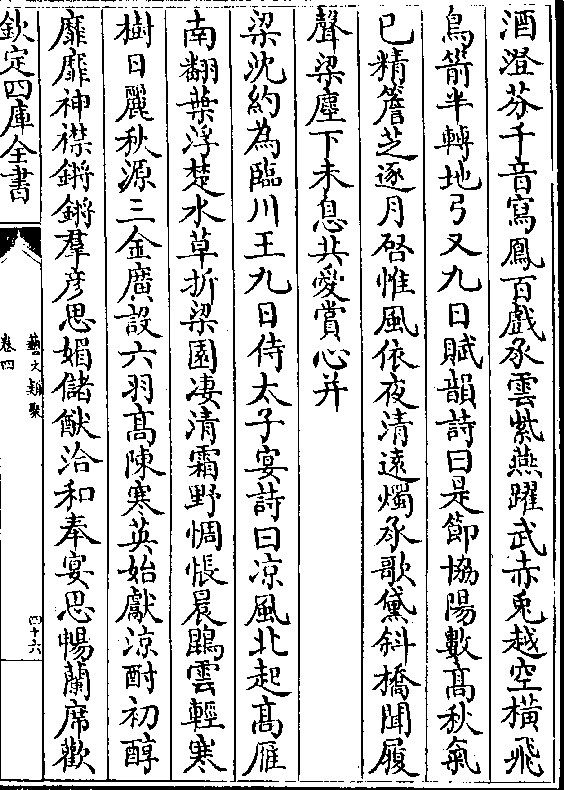 酒澄芬千音寫鳳百戲承雲紫燕躍武赤兎越空橫飛
鳥箭半轉地弓又九日賦韻詩曰是節協陽數髙秋氣
已精簷芝逐月啓惟風依夜清遠燭承歌黛斜橋聞履
聲梁塵下未息共愛賞心并
梁沈約為臨川王九日侍太子宴詩曰凉風北起髙雁
南翻葉浮楚水草折梁園凄清霜野惆悵晨鵾雲輕寒
樹日麗秋源三金廣設六羽髙陳寒英始獻涼酎初醇
靡靡神襟鏘鏘羣彦思媚儲猷洽和奉宴思暢蘭席歡
欽定四庫全書
藝文類聚
卷四
四十六